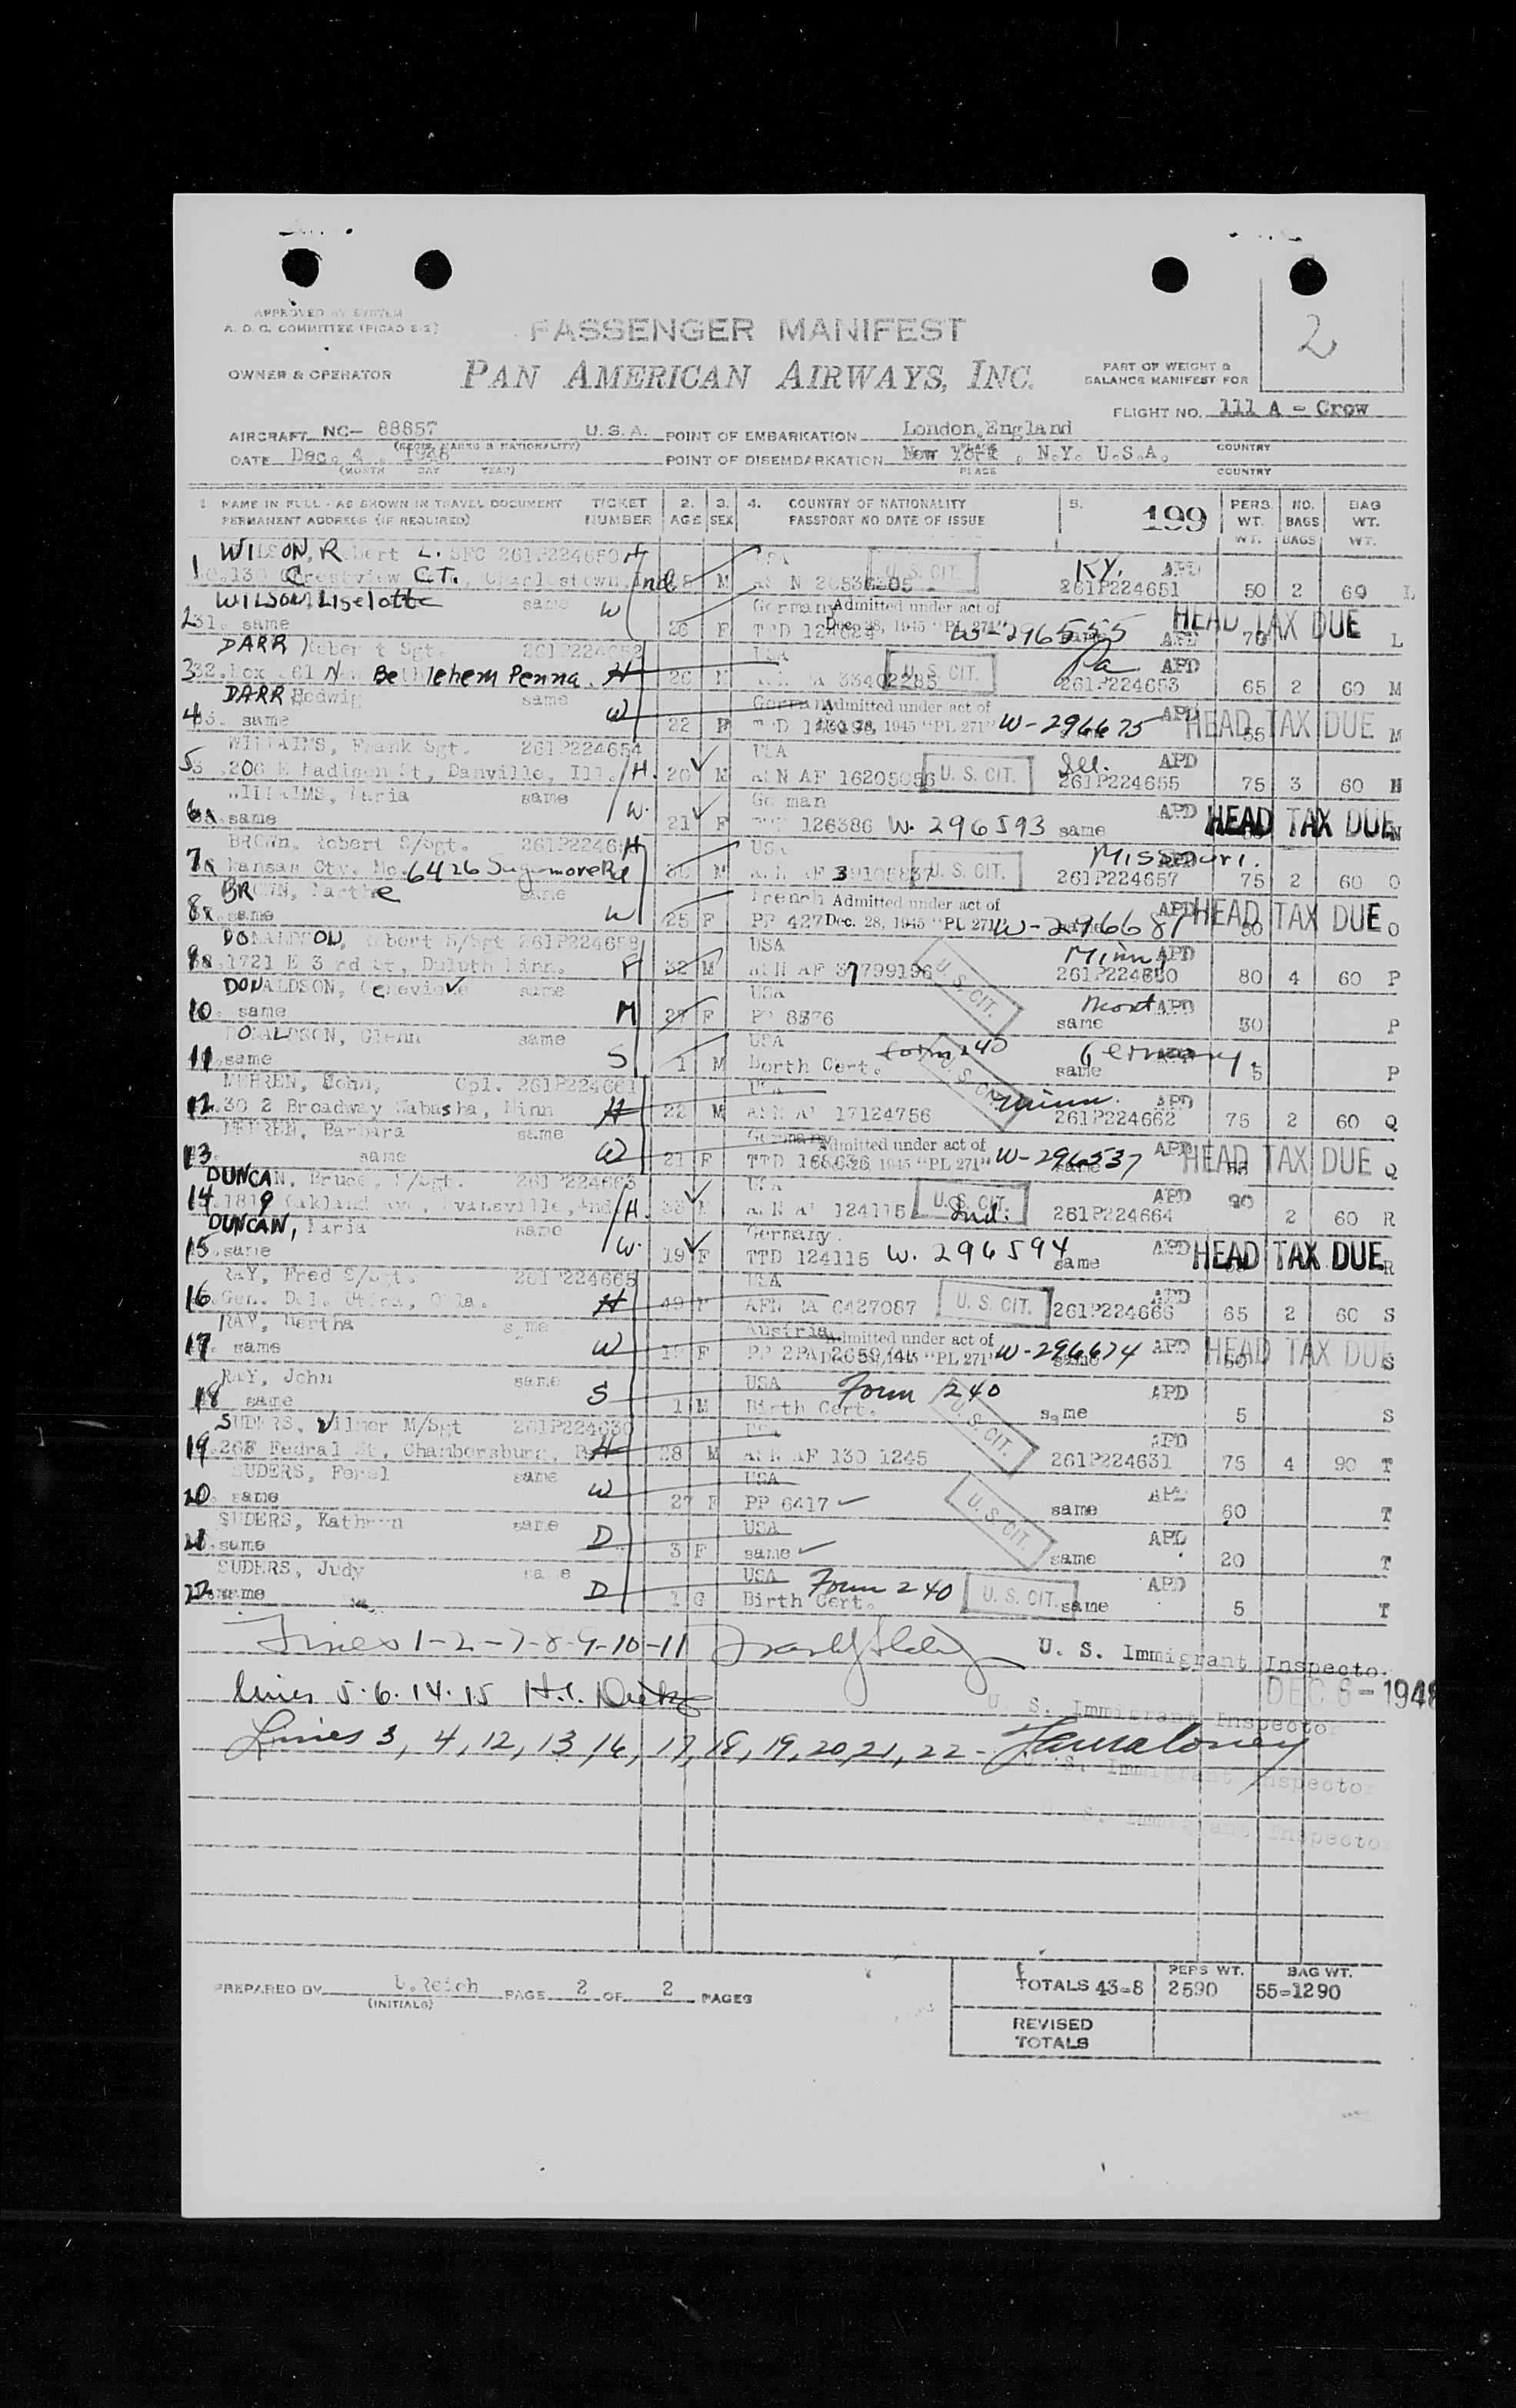 2
APPROVED BY SYSTEM
A. D. C. COMMITTEE (PICAO 8-2)
PASSENGER MANIFEST
OWNER & OPERATOR
PAN AMERICAN AIRWAYS, INC.
PART OF WEIGHT &
BALANCE MANIFEST FOR
FLIGHT NO. 111 A - Crow
AIRCRAFT NC- 88857 U.S.A. POINT OF EMBARKATION London, England
(REGIS. MARKS & NATIONALITY) PLACE COUNTRY
DATE Dec. 4, 1948 POINT OF DISEMBARKATION New York, N.Y. U.S.A.
(MONTH DAY YEAR) PLACE COUNTRY
1. NAME IN FULL - AS SHOWN IN TRAVEL DOCUMENT TICKET 2. 3. 4. COUNTRY OF NATIONALITY 5. 199 PERS. NO. BAG
PERMANENT ADDRESS (IF REQUIRED) NUMBER AGE SEX PASSPORT NO DATE OF ISSUE WT. BAGS WT.
WT. BAGS WT.
WILSON, Robert L. SFC 261P224650 H USA U. S. CIT. Ky. APD
1 130 Crestview CT., Charlestown, Ind M 261P224651 50 2 60 L
WILSON, Liselotte same W Germany Admitted under act of HEAD TAX DUE
2 same 26 F TTD Dec. 28, 1945 "PL 271" W-296555 same APD 70 L
DARR Robert Sgt. USA U. S. CIT. Pa APD
3 Box 61 New Bethlehem Penna. H M 33402285 261P224653 65 2 60 M
DARR Hedwig same W Germany Admitted under act of APD HEAD TAX DUE
4 same 22 F TTD Dec. 28, 1945 "PL 271" W-296675 M
WILLAIMS, Frank Sgt. 261P224654 USA Ill. APD
5 206 E Madison St, Danville, Ill. H. 20 M ASN AF 16205056 U. S. CIT. 261P224655 75 3 60 N
WILLAIMS, Maria same W. German APD HEAD TAX DUE
6 same 21 F TTD 126386 W. 296593 same N
BROWN, Robert S/Sgt. H USA Missouri.
7 Kansas Cty. Mo. 6426 Sagamore Rd M U. S. CIT. 261P224657 75 2 60 O
BROWN, Marthe same W French Admitted under act of APD HEAD TAX DUE
8 same 25 F PP 427 Dec. 28, 1945 "PL 271" W-296681 O
DONALDSON, Robert S/Sgt USA Minn APD
9 1721 E 3 rd St, Duluth Minn. F 32 M ASN AF 37799196 U. S. CIT. 80 4 60 P
DONALDSON, Genevieve same USA Mont APD
10 same M 27 F PP 8576 same P
DONALDSON, Glenn same USA Form 240 Germany
11 same S 1 M Borth Cert. U. S. CIT. same 5 P
MEHREN, John, Cpl. 261P224661 USA Minn. APD
12 30 2 Broadway Wabasha, Minn H 22 M 17124756 261P224662 75 2 60 Q
MEHREN, Barbara same W Germany Admitted under act of APD HEAD TAX DUE
13 same 21 F TTD Dec. 28, 1945 "PL 271" W-296537 same Q
DUNCAN, Bruce, T/Sgt. 261P224663 USA U. S. CIT. APD
14 1819 Oakland Ave, Evansville, Ind H. M 124115 Ind. 261P224664 90 2 60 R
DUNCAN, Maria same W. Germany. APD HEAD TAX DUE
15 same 19 F TTD 124115 W. 296594 same R
RAY, Fred S/Sgt. 261P224665 USA APD
16 Gen. Del. Utica, Okla. H 49 M ASN RA 6427087 U. S. CIT. 261P224666 65 2 60 S
RAY, Hertha same W Austria Admitted under act of APD HEAD TAX DUE
17 same 19 F "PL 271" W-296674 same S
RAY, John same USA Form 240 APD
18 same S 1 M Birth Cert. U. S. CIT. same 5 S
SUDERS, Wilmer M/Sgt 261P224630 USA APD
19 268 Fedral St, Chambersburg, Pa H 28 M ASN AF 130 1245 261P224631 75 4 90 T
SUDERS, Feral same W USA APD
20 same 27 F PP 6417 U. S. CIT. same 60 T
SUDERS, Kathryn same D USA APD
21 same 3 F same same 20 T
SUDERS, Judy same D USA Form 240 APD
22 same 1 G Birth Cert. U. S. CIT. same 5 T
Lines 1-2-7-8-9-10-11 U. S. Immigrant Inspector
DEC 6-1948
lines 5.6.14.15 U. S. Immigrant Inspector
Lines 3, 4, 12, 13, 16, 17, 18, 19, 20, 21, 22 -
U. S. Immigrant Inspector
U. S. Immigrant Inspector
PREPARED BY U. Reich PAGE 2 OF 2 PAGES
(INITIALS)
PERS WT. BAG WT.
TOTALS 43-8 2590 55-1290
REVISED
TOTALS